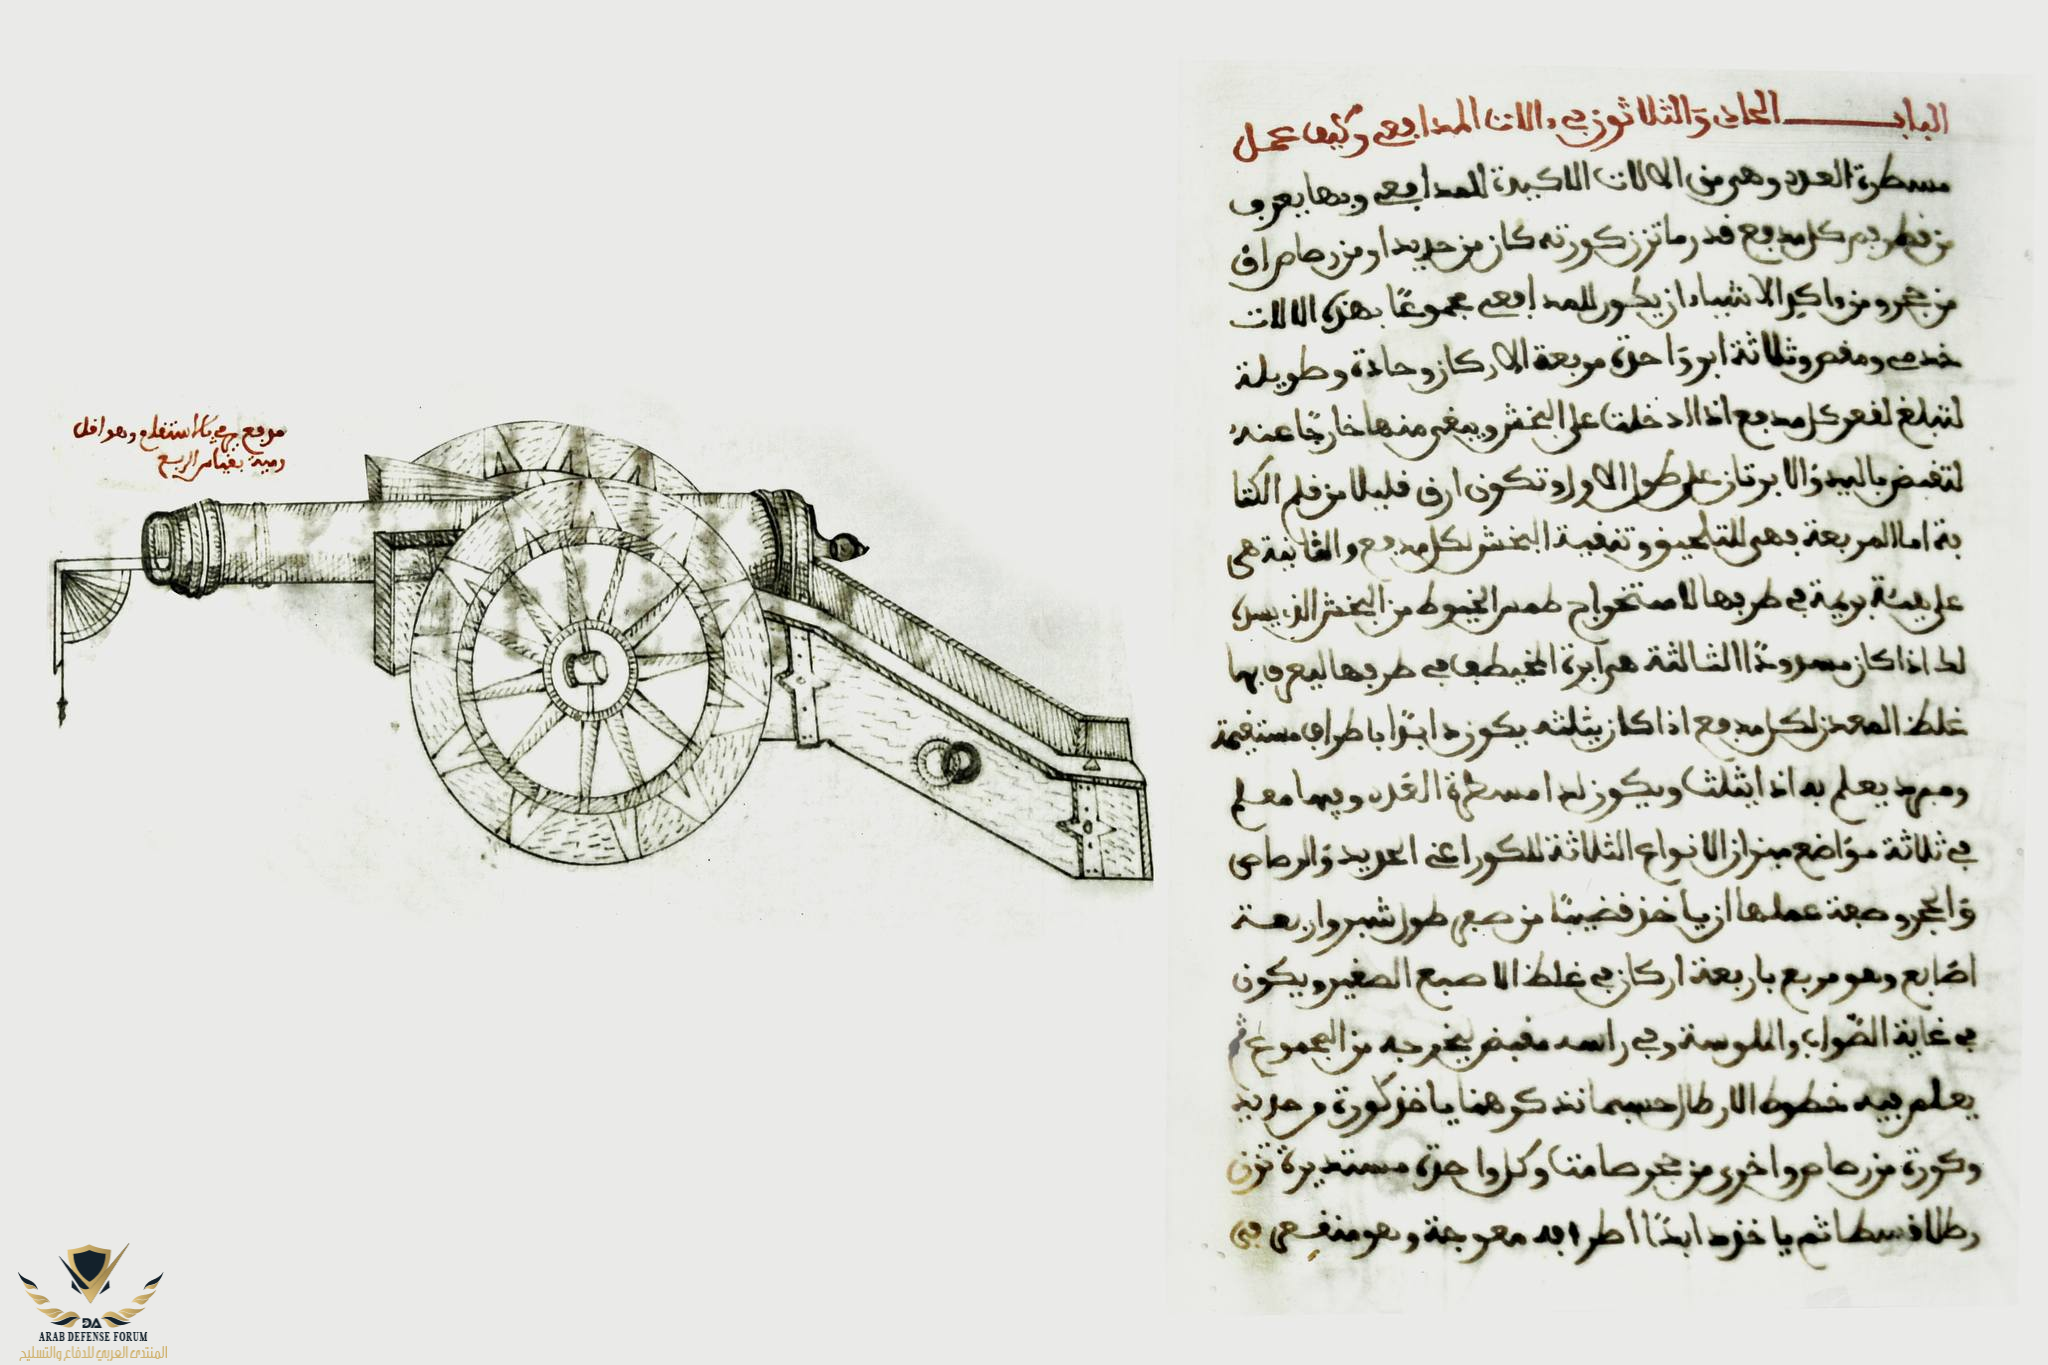 مدفع يرمي بالاستفلاع وهو اقل
رمية بقياس الربع
البـــاب الحادي والثلاثون في ءالات المدافعي وكيف عمل
مسطرة العدد وهي من الالات الاكيدة للمدافعي وبها يعرف
من قطر فم كل مدفع قدر ما تزن كورته كان من حديد او من رصاص او
من حجر ومن واكد الاشياء ان يكون للمدافعي مجموعا بهذه الالات
خدمي ومقص وثلاثة ابر واحدة مربعة الاركان وحادة وطويلة
لتبلغ لقعر كل مدفع اذا ادخلت على البخش ويبقى منها خارجا عنه
لتقبض باليد والابرتان على طول الاولى وتكون ارق قليلا من قلم الكتا
بة اما المربعة فهي للتلحيق وتنقية البخش لكل مدفع والثانية هي
على هيئة بريمة في طرفها لاستخراج طمس الخيوط من البخش الذي يسد
لها اذا كان مسدودا الثالثة هي ابرة الخيطف في طرفها ليعرف بها
غلظ المعدن لكل مدفع اذا كان يثلثه يكون دابدا باطراف مستقيمة
ومبرد يعلم به اذا يثلث ويكون لها مسطرة العدد وفيها معلم
في ثلاثة مواضع ميزان الانواع الثلاثة للكور اعني الحديد والرصاص
والحجر وصفة عملها ان ياخذ قضيبا من صفر طول شبر واربعة
اصابع وهو مربع باربعة اركان في غلظ الاصبع الصغير ويكون
في غاية الصواب والملوسة وفي راسه مقبض يخرجه من المجموع ثم
يعلم فيه خطوط الارطال حسبما نذكو هنا ياخذ كورة من حديد
وكورة من رصاص واخرى من حجر صامت وكل واحدة مستديرة تزن
رطلا قسطا ثم ياخذ دابدا اطرافه معوجة وهو منقسم في